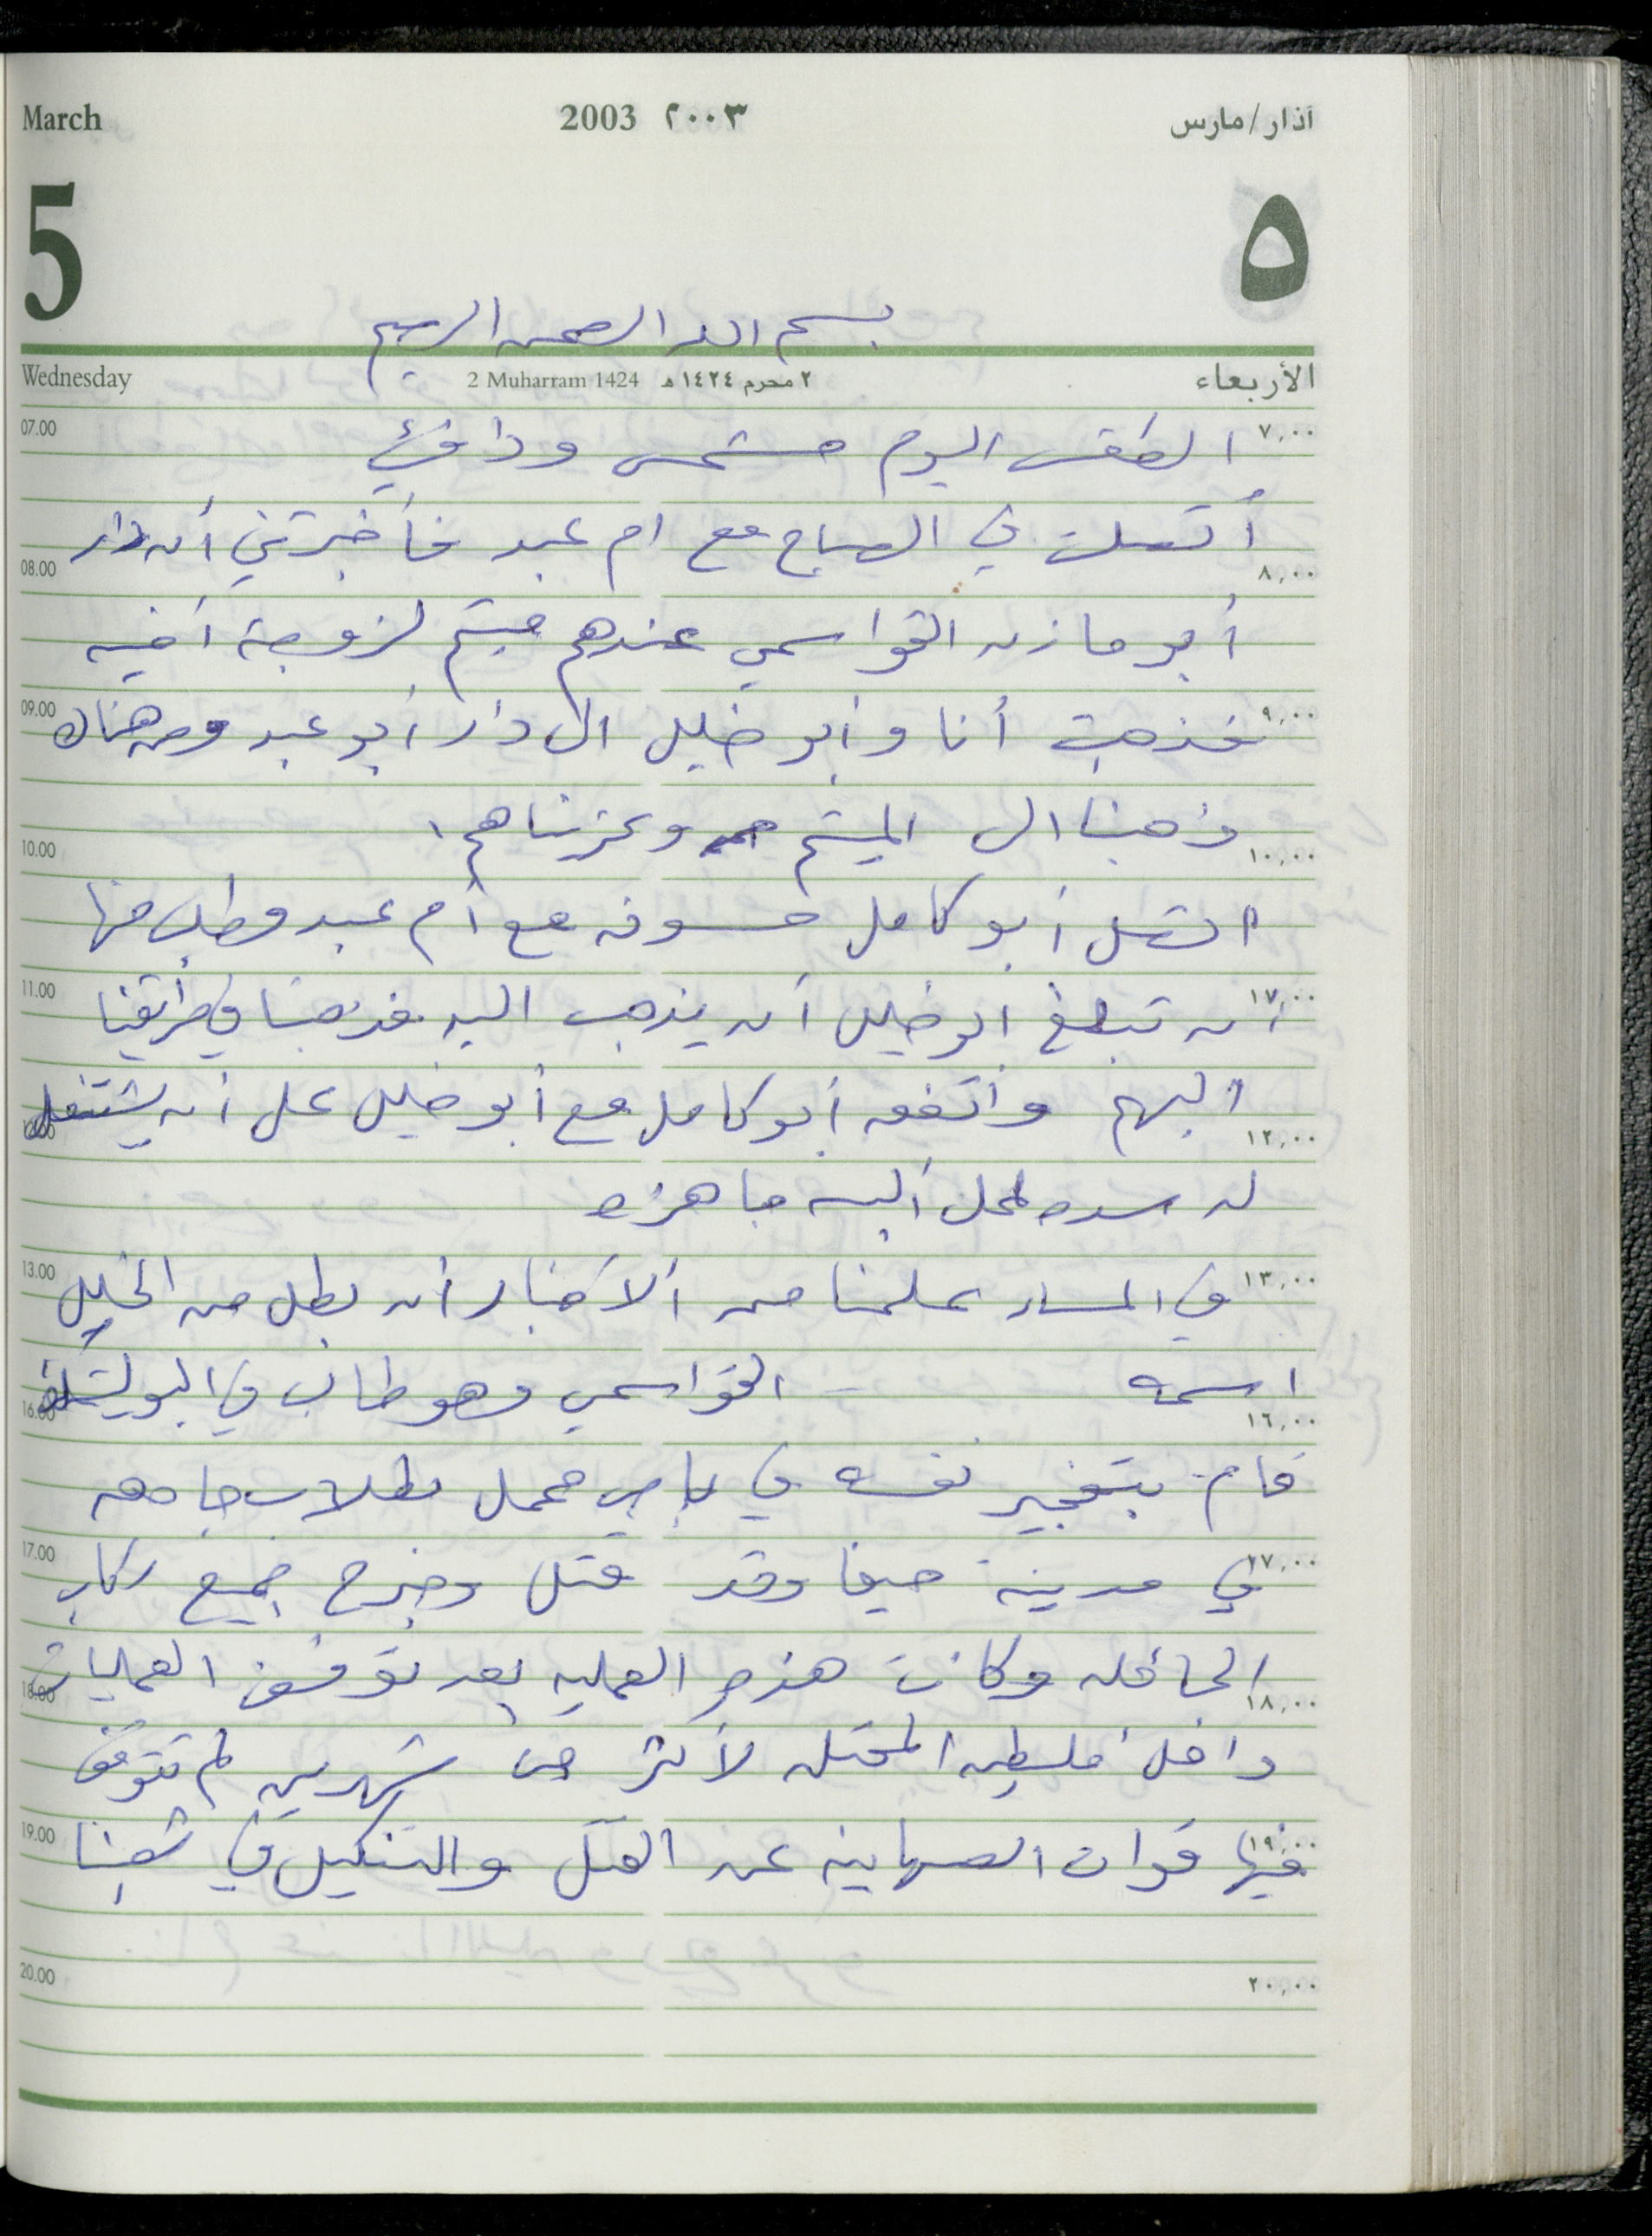 March 2003 ٢٠٠٣ آذار/مارس
5 ٥
بسم الله الرحمن الرحيم
Wednesday 2 Muharram 1424 ٢ محرم ١٤٢٤ هـ الأربعاء
07.00 الطقس اليوم مشمس ودافئ ٧,٠٠
أتصلت في الصباح مع ام عبد فأخبرتني أن دار
08.00 ٨,٠٠
أبو مازن القواسمي عندهم ميتم لزوجة أخيه
09.00 فذهبت أنا وأبو خليل الى دار أبو عبد ومن هناك ٩,٠٠
ذهبنا الى الميتم وعزيناهم.
10.00 ١٠,٠٠
اتصل أبو كامل حسونه مع أم عبد وطلب منها
11.00 أن تبلغ ابو خليل أن يذهب اليه فذهبنا في طريقنا ١٧,٠٠
اليهم وأتفق أبو كامل مع أبو خليل على أن يشتغل
١٢,٠٠
له سده لمحل ألبسه جاهزه
13.00 في المساء علمنا من ألاخبار أن بطل من الخليل ١٣,٠٠
اسمه القواسمي وهو طالب في البوليتكنك
16.00 ١٦,٠٠
قام بتفجير نفسه في باص محمل بطلاب جامعه
17.00 في مدينة حيفا وقد قتل وجرح جميع ركاب ١٧,٠٠
الحافله وكانت هذه العمليه بعد توقف العمليات
18.00 ١٨,٠٠
داخل فلسطين المحتله لأكثر من شهرين لم تتوقف
19.00 فيها قوات الصهاينه عن القتل والتنكيل في شعبنا ١٩,٠٠
20.00 ٢٠,٠٠